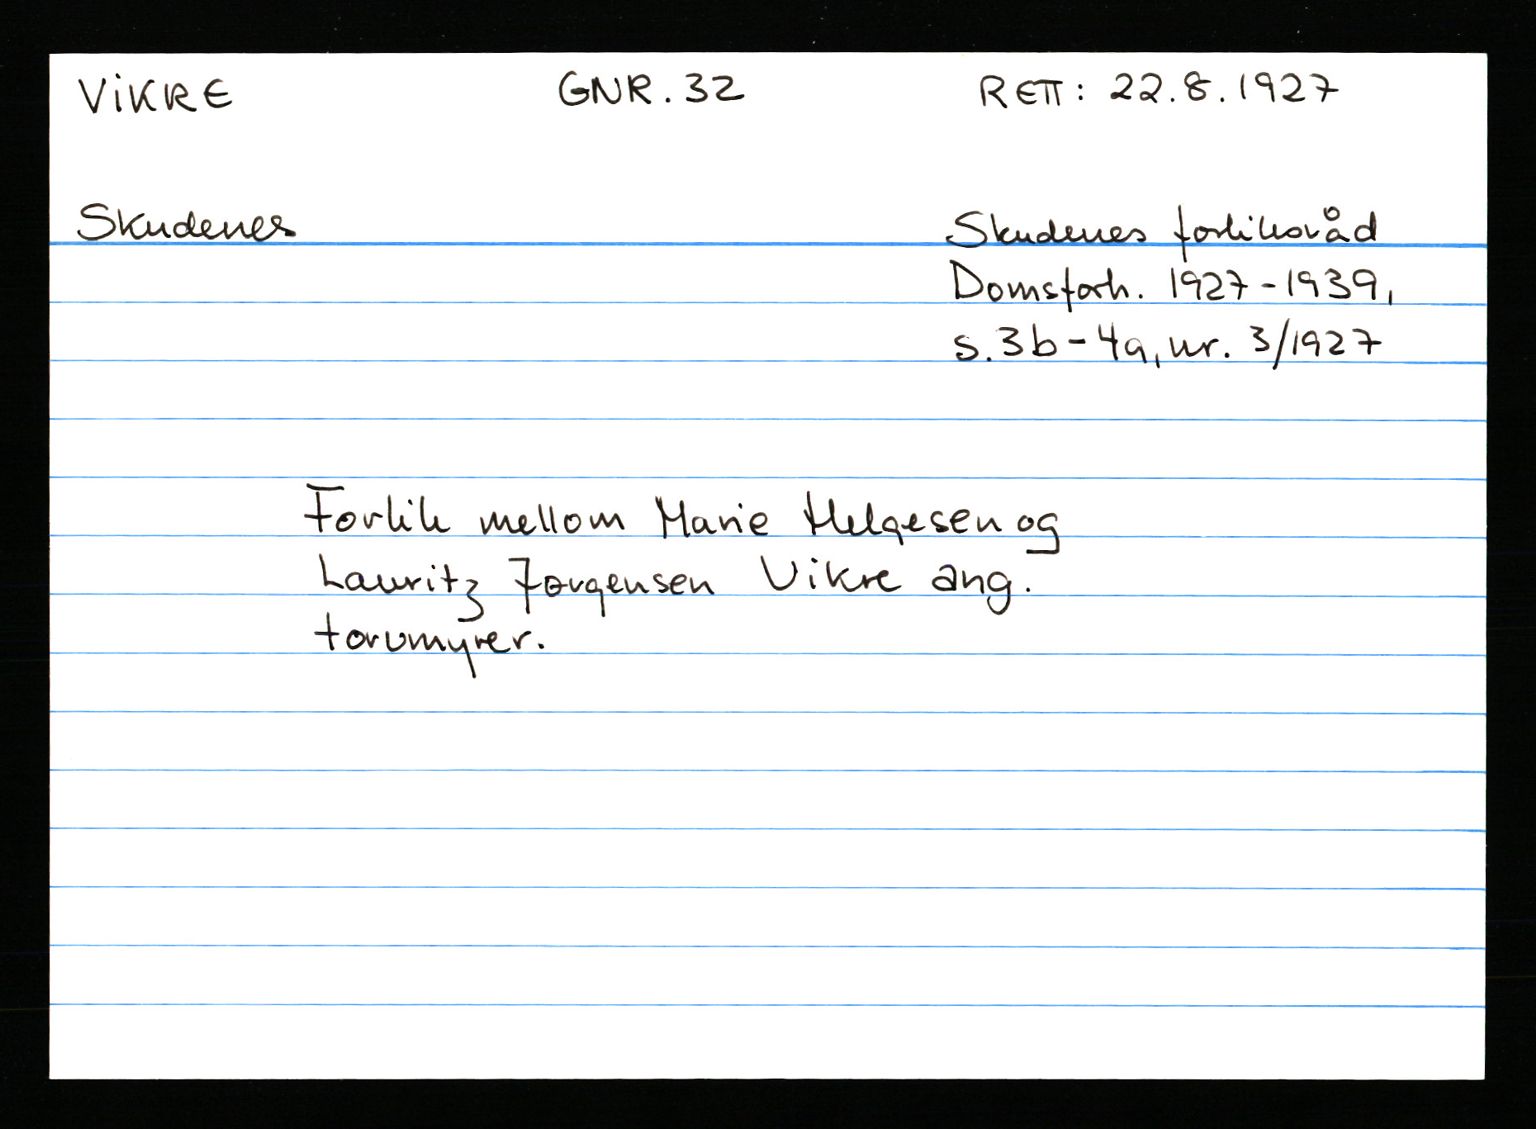 VIKRE GNR. 32 RETT: 22.8.1927
Skudenes Skudenes forliksråd
Domsforh. 1927-1939,
s. 3b-4a, nr. 3/1927
Forlik mellom Marie Helgesen og
Lauritz Jørgensen Vikre ang.
torvmyrer.